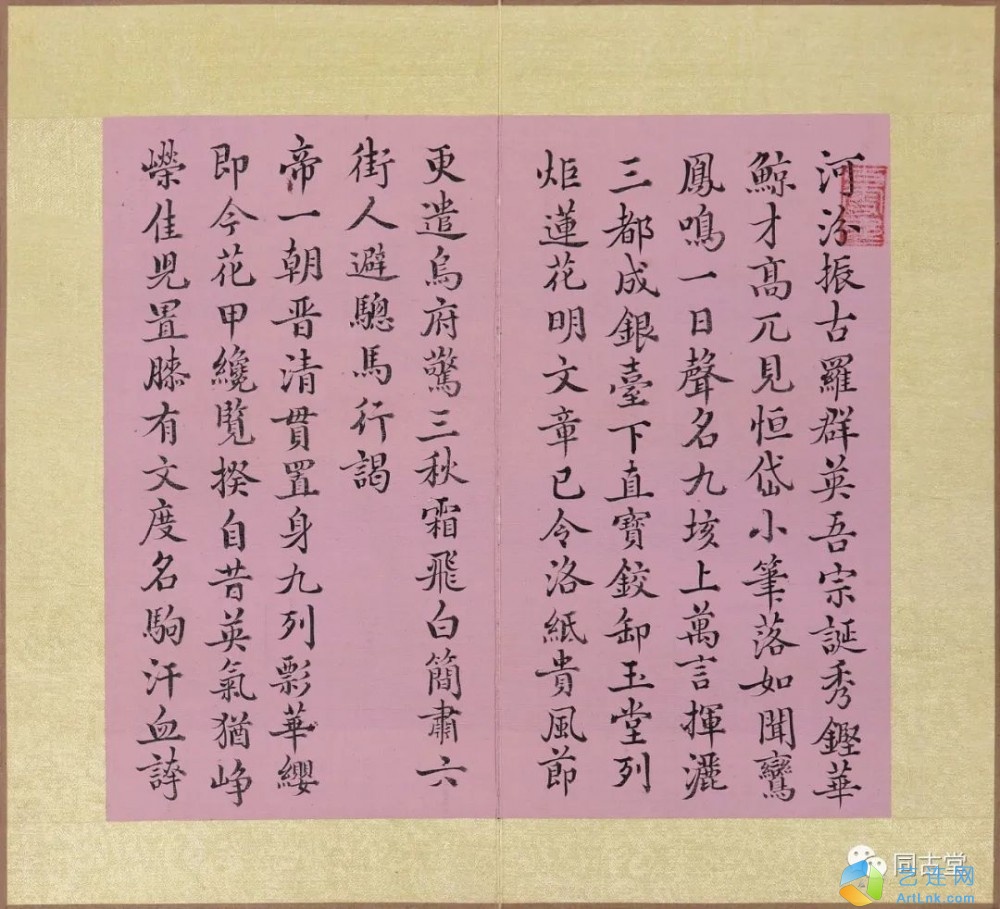 河汾振古羅群英吾宗誕秀鏗華
鯨才高兀見恒岱小筆落如聞鸞
鳳鳴一日聲名九垓上萬言揮灑
三都成銀臺下直寶鉸卸玉堂列
炬蓮花明文章已令洛紙貴風節
更遣烏府驚三秋霜飛白簡肅六
街人避驄馬行謁
帝一朝晋清貫置身九列彯華纓
即今花甲纔覽揆自昔英氣猶崢
嶸佳児置膝有文度名駒汗血誇
同古堂
艺连网
ArtLnk.com